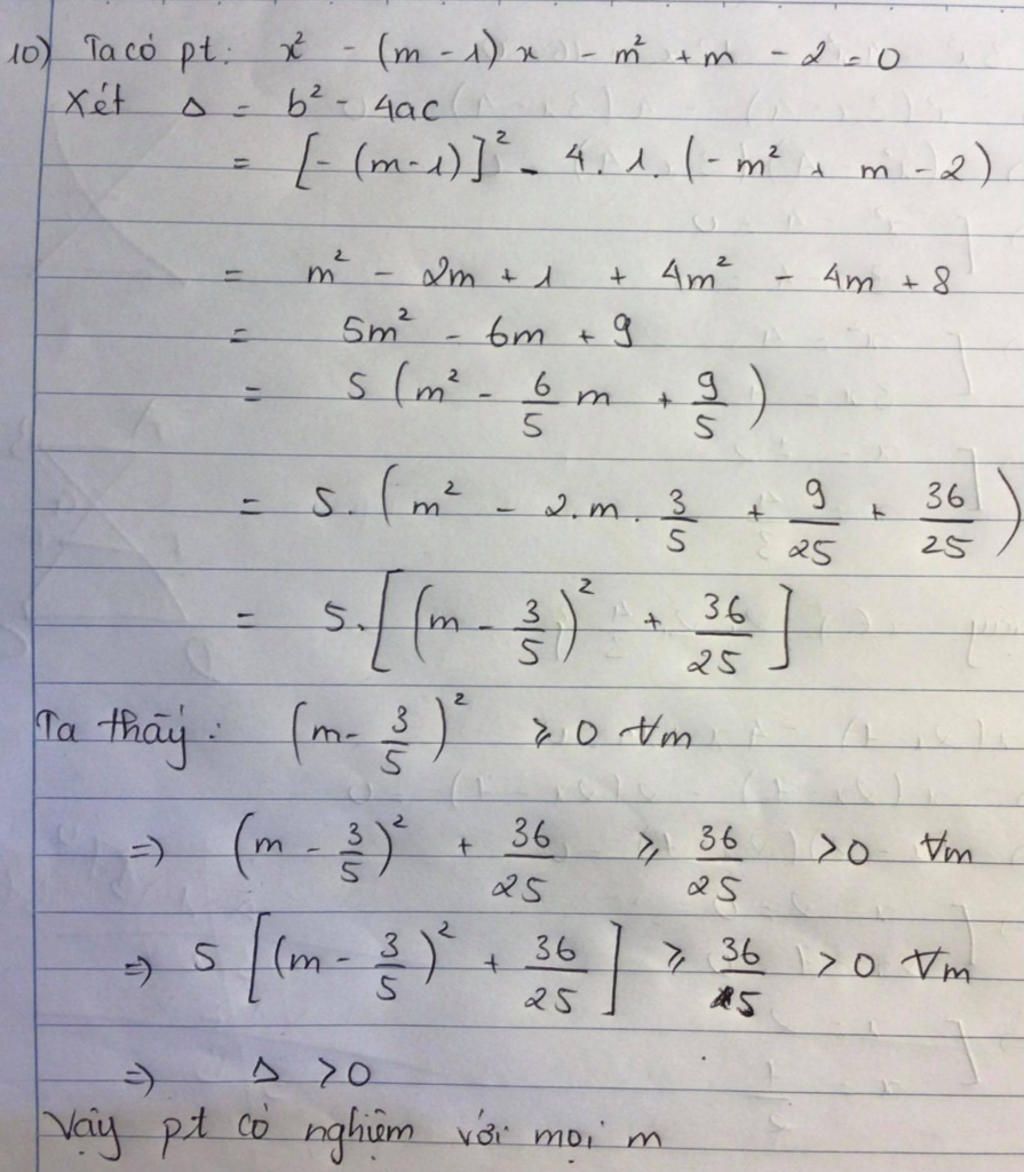 10) Ta có pt: x² - (m - 1)x - m² + m - 2 = 0
Xét Δ = b² - 4ac
= [- (m-1)]² - 4. 1. (- m² + m - 2)
= m² - 2m + 1 + 4m² - 4m + 8
= 5m² - 6m + 9
= 5 (m² - 6/5 m + 9/5)
= 5. (m² - 2.m. 3/5 + 9/25 + 36/25)
= 5. [(m - 3/5)² + 36/25]
Ta thấy: (m - 3/5)² ⩾ 0 ∀m
=> (m - 3/5)² + 36/25 ⩾ 36/25 > 0 ∀m
=> 5 [(m - 3/5)² + 36/25] ⩾ 36/5 > 0 ∀m
=> Δ > 0
Vậy pt có nghiệm với mọi m